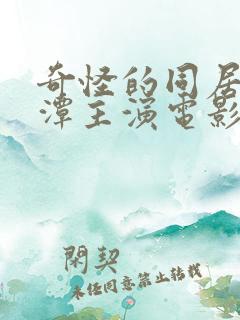 奇怪的同居
潭主演電影
閑契
未经同意禁止转载